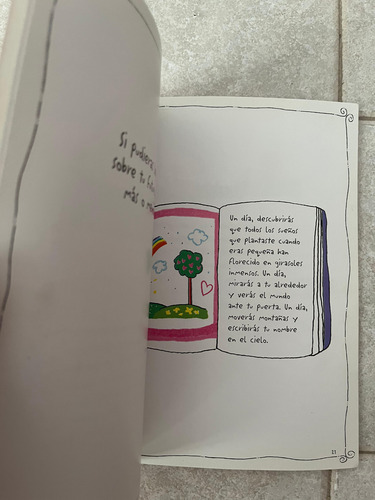 Si pudiera
sobre tu
más o
Un día, descubrirás
que todos los sueños
que plantaste cuando
eras pequeña han
florecido en girasoles
inmensos. Un día,
mirarás a tu alrededor
y verás el mundo
ante tu puerta. Un día,
moverás montañas y
escribirás tu nombre
en el cielo.